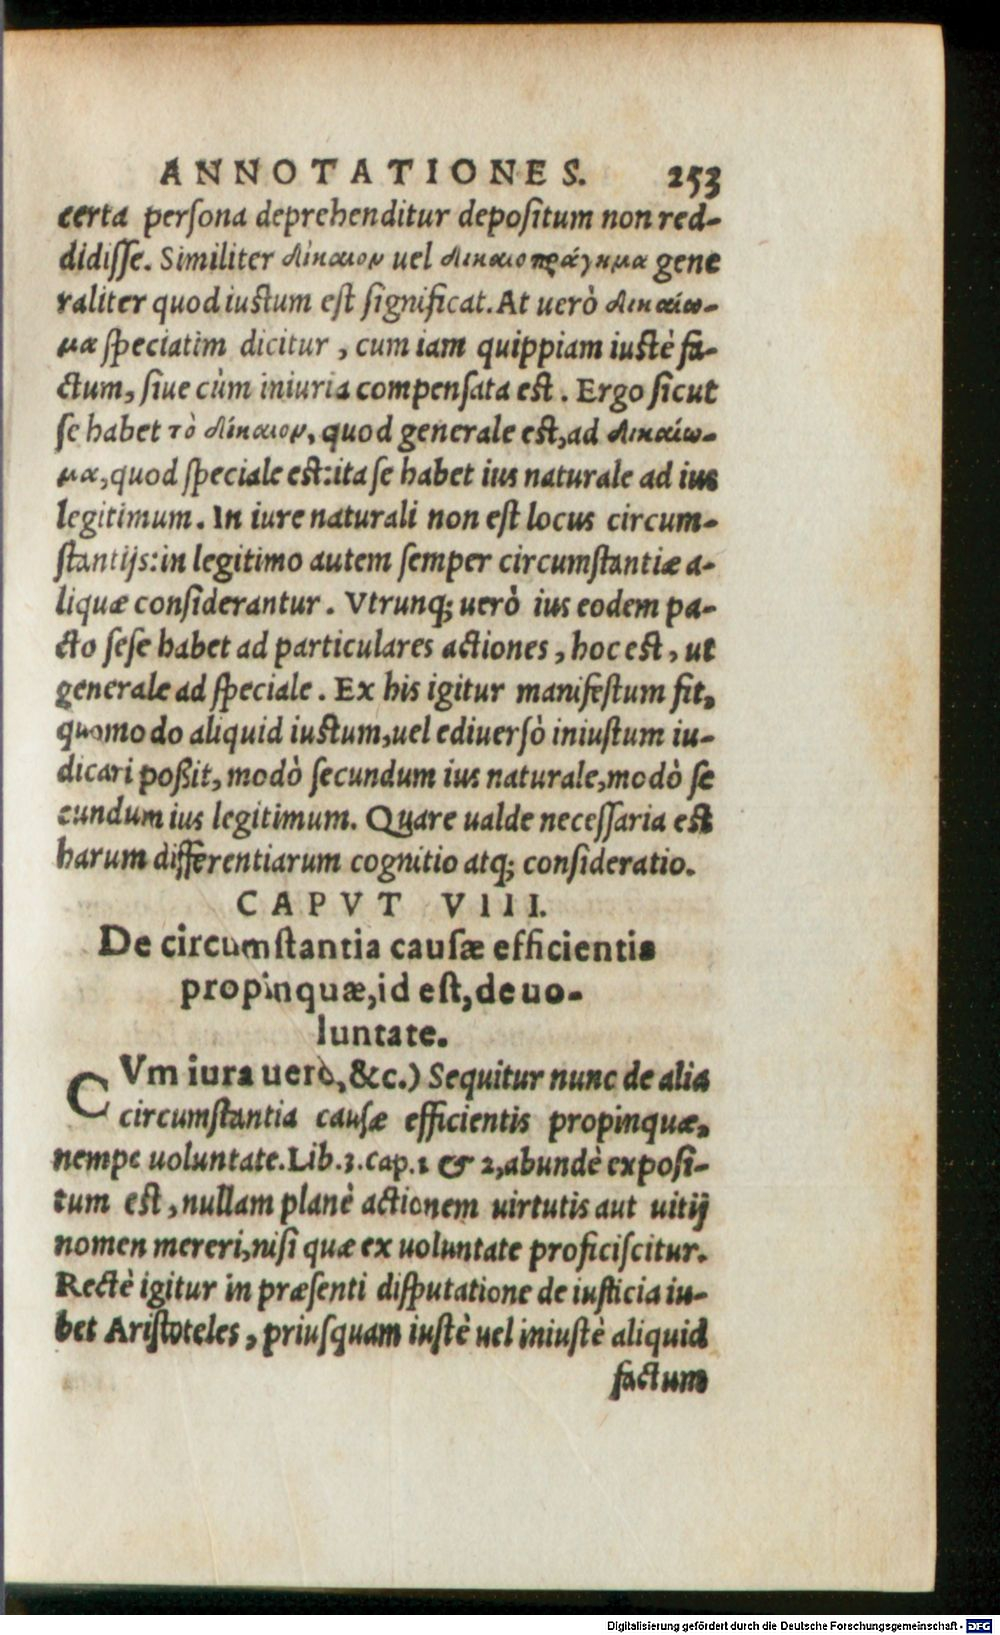 ANNOTATIONES. 253
certa perſona deprehenditur depoſitum non red-
didiſſe. Similiter δίκαιον uel δικαιοπράγημα gene
raliter quod iuſtum eſt ſignificat. At uerò δικαίω-
μα ſpeciatim dicitur, cum iam quippiam iuſtè fa-
ctum, ſiue cùm iniuria compenſata eſt. Ergo ſicut
ſe habet τὸ δίκαιον, quod generale eſt, ad δικαίω-
μα, quod ſpeciale eſt: ita ſe habet ius naturale ad ius
legitimum. In iure naturali non eſt locus circum-
ſtantijs: in legitimo autem ſemper circumſtantiæ a-
liquæ conſiderantur. Vtrunq; uerò ius eodem pa-
cto ſeſe habet ad particulares actiones, hoc eſt, ut
generale ad ſpeciale. Ex his igitur manifeſtum fit,
quomodo aliquid iuſtum, uel ediuerſò iniuſtum iu-
dicari poßit, modò ſecundum ius naturale, modò ſe
cundum ius legitimum. Quare ualde neceſſaria eſt
harum differentiarum cognitio atq; conſideratio.
CAPVT VIII.
De circumſtantia cauſæ efficientis
propinquæ, id eſt, de uo-
luntate.
CVm iura uerò, &c.) Sequitur nunc de alia
circumſtantia cauſæ efficientis propinquæ,
nempe uoluntate. Lib. 3. cap. 1 & 2, abundè expoſi-
tum eſt, nullam planè actionem uirtutis aut uitij
nomen mereri, niſi quæ ex uoluntate proficiſcitur.
Rectè igitur in præſenti diſputatione de iuſticia iu-
bet Ariſtoteles, priuſquam iuſtè uel iniuſtè aliquid
factum
Digitalisierung gefördert durch die Deutsche Forschungsgemeinschaft - DFG